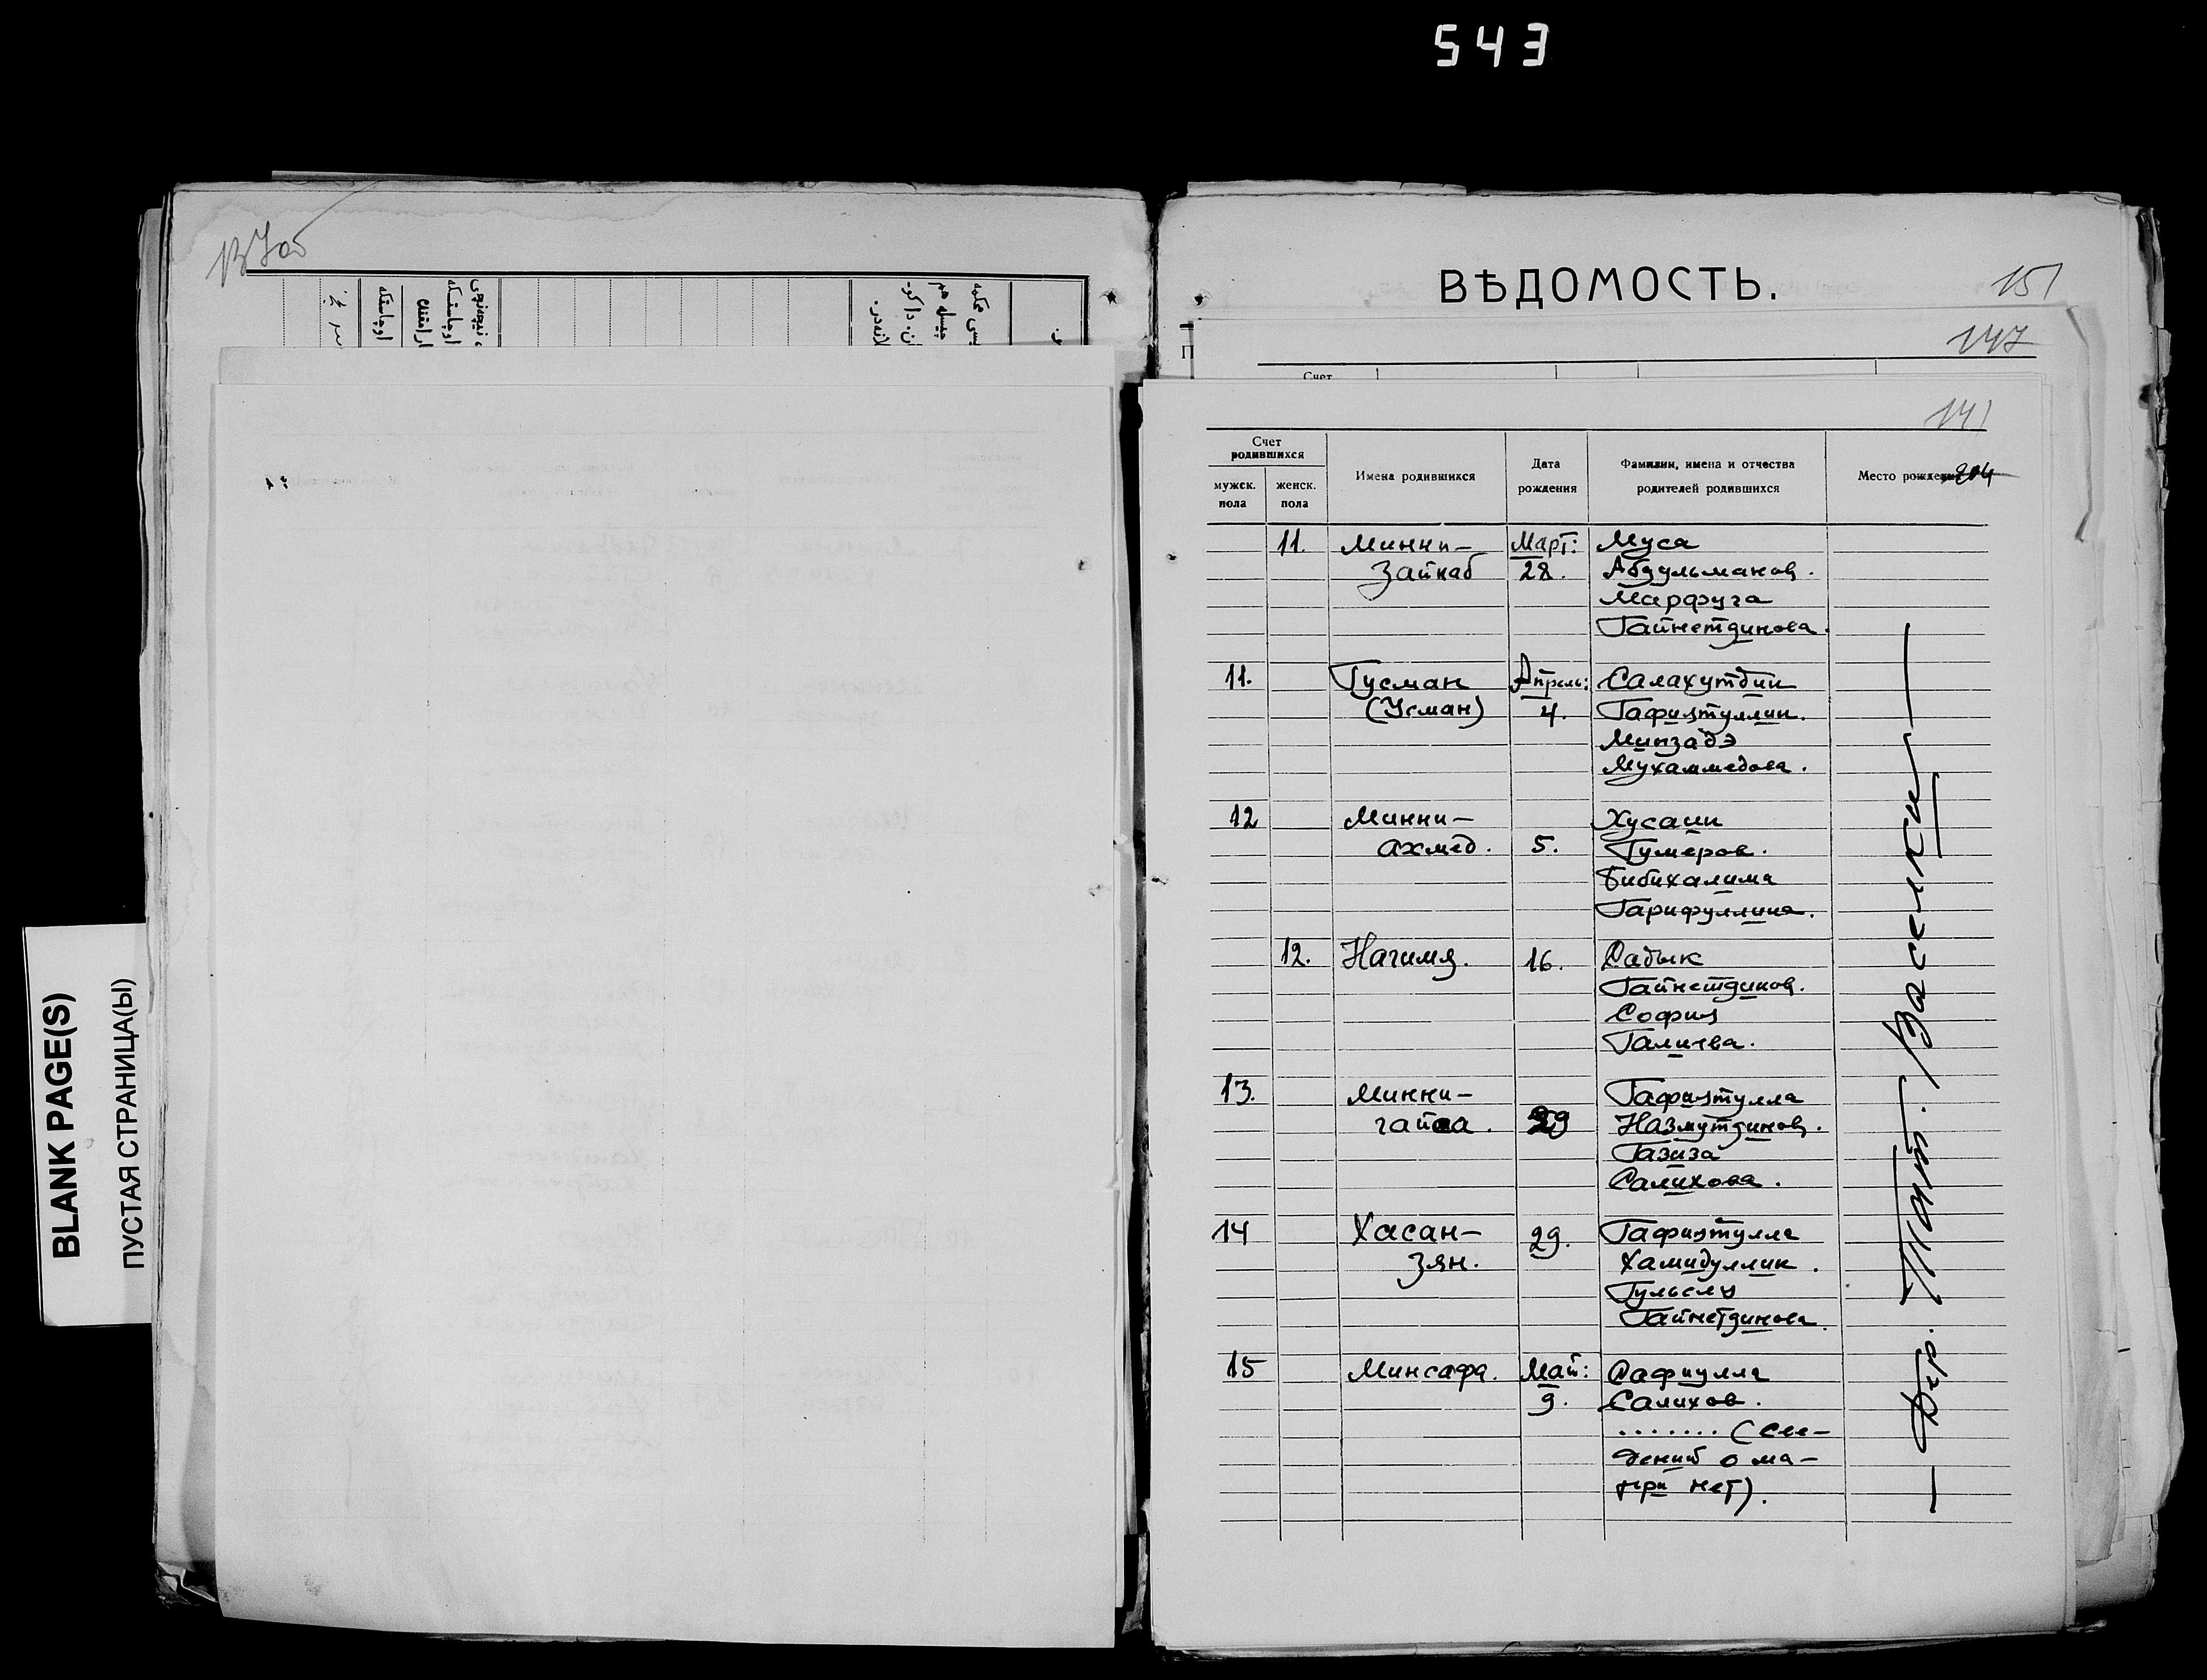 543
BLANK PAGE(S)
ПУСТАЯ СТРАНИЦА(Ы)
ВѢДОМОСТЬ.
151
147
Счет
141
Счет родившихся
мужск. пола
женск. пола
Имена родившихся
Дата рождения
Фамилии, имена и отчества родителей родившихся
Место рождения
204
11. Минни- Март: Муса
Зайнаб 28. Абдульманов.
Марфуга
Гайнетдинова.
11. Гусман Апрель: Салахутдин
(Усман) 4. Гафиятуллин.
Минзадэ
Мухаммедова.
12 Минни- Хусаин
ахмед. 5. Гумеров.
Бибихалима
Гарифуллина.
12. Нагимя. 16. Садык
Гайнетдинов.
София
Галиева.
13. Минни- Гафиятулла
гайса. 29 Назмутдинов.
Газиза
Салихова.
14 Хасан- 29. Гафиятулла
зян. Хамидуллин.
Гульсля
Гайнетдинова.
15 Минсафа. Май: Сафиулла
9. Салихов.
....... (све-
дений о ма-
тери нет).
— Дер. Тат. / Васелки —